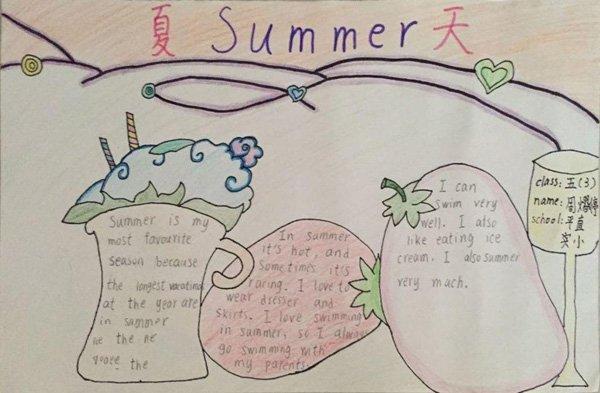 夏 Summer 天
class: 五(3)
name: 周
school: 平直
实小
Summer is my
most favourite
season because
the longest vacating
at the year are
in summer
the ne
the
In summer
it's hot, and
Sometimes it's
racing. I love to
wear dresser and
skirts. I love swimming
in summer, so I always
go swimming with
my parents
I can
swim very
well. I also
like eating ice
cream. I also summer
very mach.